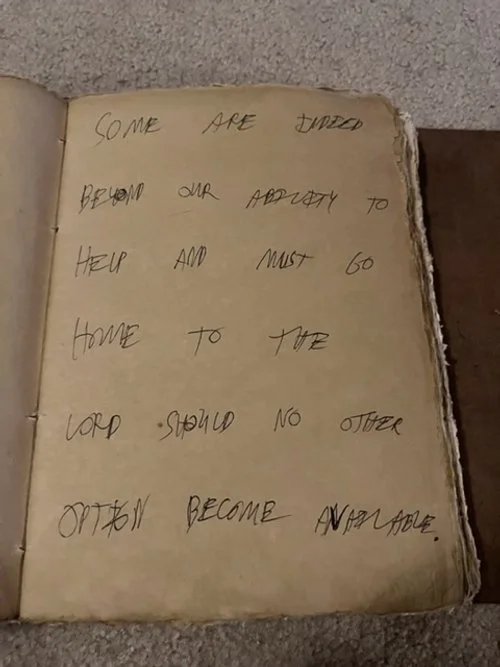 SOME ARE INDEED
BEYOND OUR ABILITY TO
HELP AND MUST GO
HOME TO THE
LORD SHOULD NO OTHER
OPTION BECOME AVAILABLE.